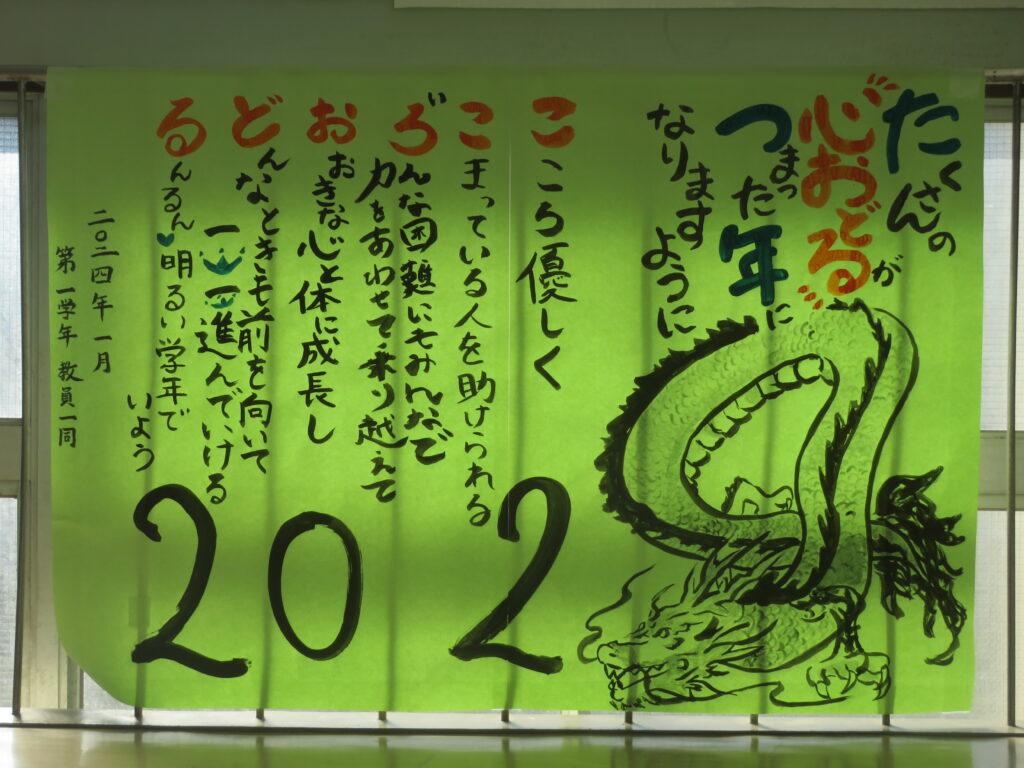 たくさんの
心おどるが
つまった年に
なりますように
こころ優しく
こまっている人を助けられる
いろんな困難にもみんなで
力をあわせて乗り越えて
おおきな心と体に成長し
どんなときも前を向いて
一一進んでいける
るんるん明るい学年で
いよう
二〇二四年 一月
第一学年 教員一同
202